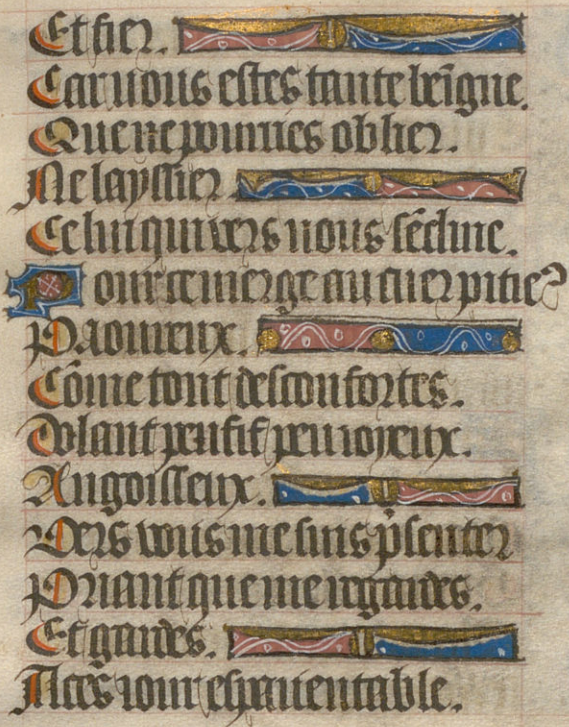 Et fier.
Car vous estes tante beīgne.
Que ne pouuies oblier.
Ne layssier
Celui qui vers uous sēcline.
Pour ce vierge au cuer pitie
Paoureux.
Cōme tout desconfortes.
Dolant pensif peu ioyeux.
Angoisseux.
Vers vous me suis p̄senter
Priant que me regardes.
Et gardes.
A ces iour espauentable.